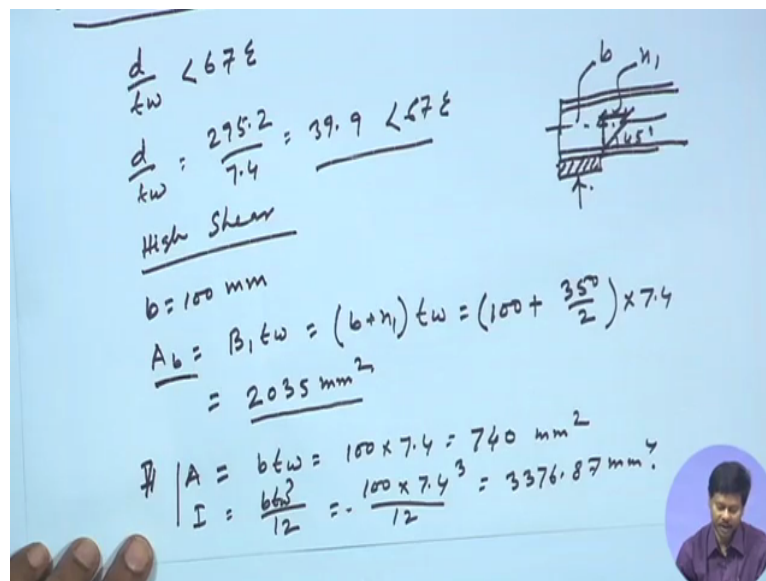 d/tw < 67ε
d/tw = 295.2/7.4 = 39.9 < 67ε
b n1
45°
High Shear
b = 100 mm
Ab = B1 tw = (b+n1) tw = (100 + 350/2) × 7.4
= 2035 mm²
A = btw = 100 × 7.4 = 740 mm²
I = btw³/12 = 100 × 7.4³/12 = 3376.87 mm⁴